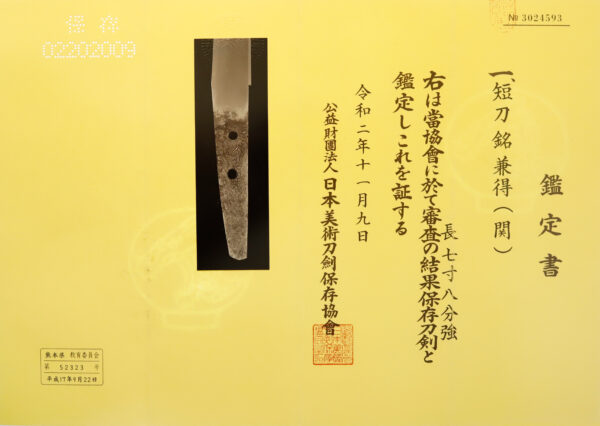 № 3024593
鑑定書
一、短刀 銘 兼得(関)
長 七寸八分強
右は當協會に於て審査の結果保存刀剣と
鑑定しこれを証する
令和二年十一月九日
公益財團法人 日本美術刀劍保存協會
保存
02202009
熊本県 教育委員会
第 52323 号
平成17年9月22日